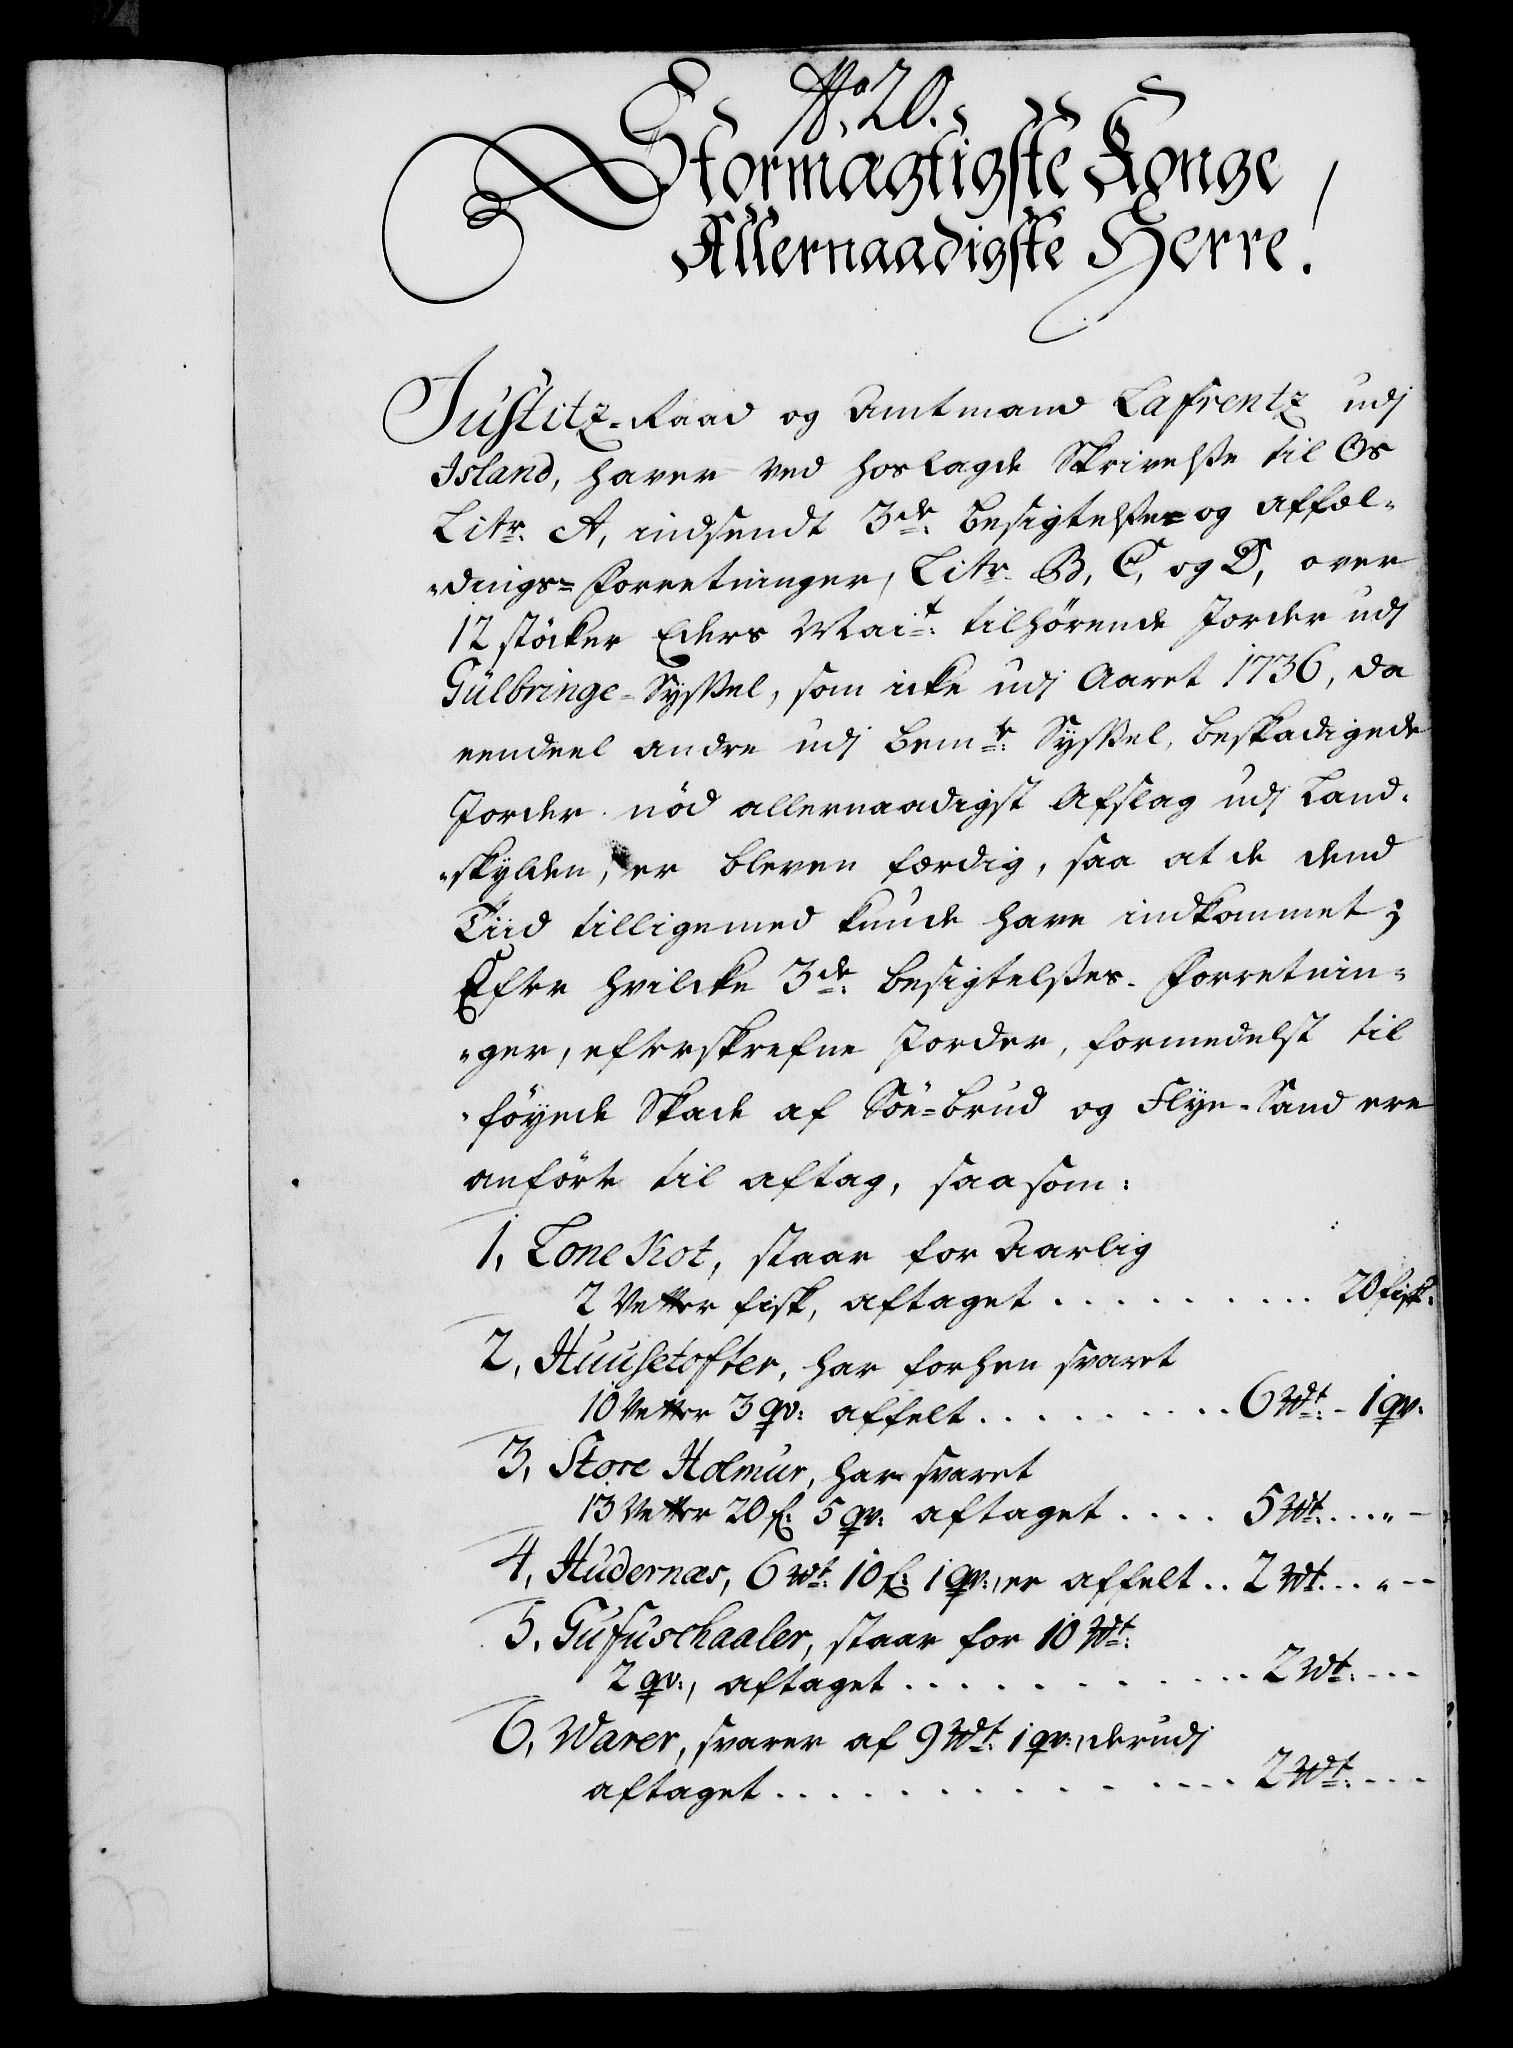 No. 20.
Stormægtigste Konge
Allernaadigste Herre!
Justitz-Raad og Amtmand Lafrentz udj
Island, haver ved hoslagde Skrivelsse til Os
Litr. A, indsendt 3de Besigtelsse- og affæl-
dings-Forretninger, Litr. B, C, og D, over
12 stöcker Eders Mait. tilhörende Jorder udj
Gülbringe-Syssel, som icke udj Aaret 1736, da
eendeel andre udj bemte Syssel, beskadigede
Jorder nöd allernaadigst Afslag udj Land-
skylden, er bleven færdig, saa at de dend
Tiid tilligemed kunde have indkommet;
Efter hvilcke 3de Besigtelsses-Forretnin-
ger, efterskrefne Jorder, formedelst til
föyede Skade af Söe-brud og Flye-Sand ere
anförte til aftag, saasom:
1, Lonekot, staar for Aarlig
2 Vetter fisk, aftaget . . . . . . . . . 20 fisk.
2, Huusetofter, har forhen svaret
10 Vetter 3 qv: affelt . . . . . . . . . 6 Wt: - 1 qv.
3, Store Holmur, har svaret
13 Vetter 20 f: 5 qv: aftaget . . . . 5 Wt: . . „ -
4, Hudernæs, 6 Wt: 10 f: 1 qv:, er affelt . . 2 Wt. . . „ - -
5, Gufuschaaler, staar for 10 Wt:
2 qv:, aftaget . . . . . . . . . . . 2 Wt: - - -
6, Warer, svarer af 9 Wt: 1 qv:, derudj
aftaget . . . . . . . . . . - - - - 2 Wt: - - -